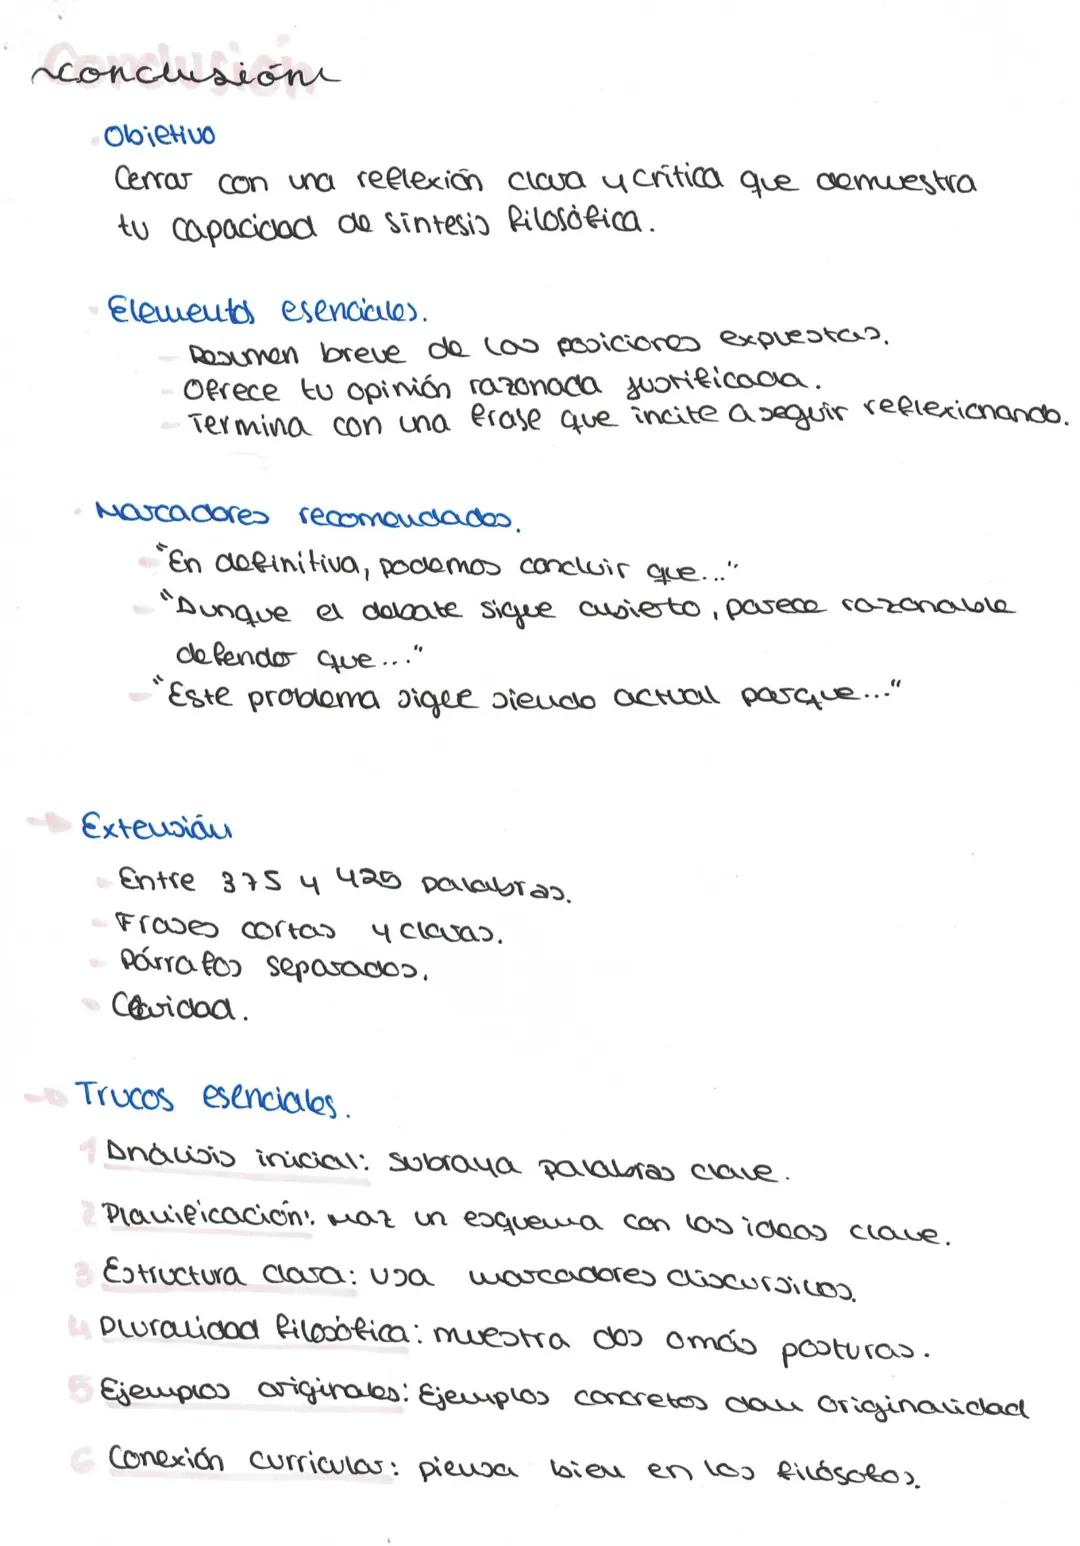 Conclusión
Objetivo
Cerrar con una reflexión clara y crítica que demuestra
tu capacidad de síntesis filosófica.
Elementos esenciales.
Resumen breve de las posiciones expuestas.
Ofrece tu opinión razonada justificada.
Termina con una frase que incite a seguir reflexionando.
Marcadores recomendados.
"En definitiva, podemos concluir que..."
"Aunque el debate sigue abierto, parece razonable
defender que..."
"Este problema sigue siendo actual porque..."
Extensión
Entre 375 y 425 palabras.
Frases cortas y claras.
Párrafos separados.
Claridad.
Trucos esenciales.
1 Análisis inicial: subraya palabras clave.
2 Planificación: haz un esquema con las ideas clave.
3 Estructura clara: usa marcadores discursivos.
4 Pluralidad filosófica: muestra dos o más posturas.
5 Ejemplos originales: Ejemplos concretos dan originalidad
6 Conexión curricular: piensa bien en los filósofos.